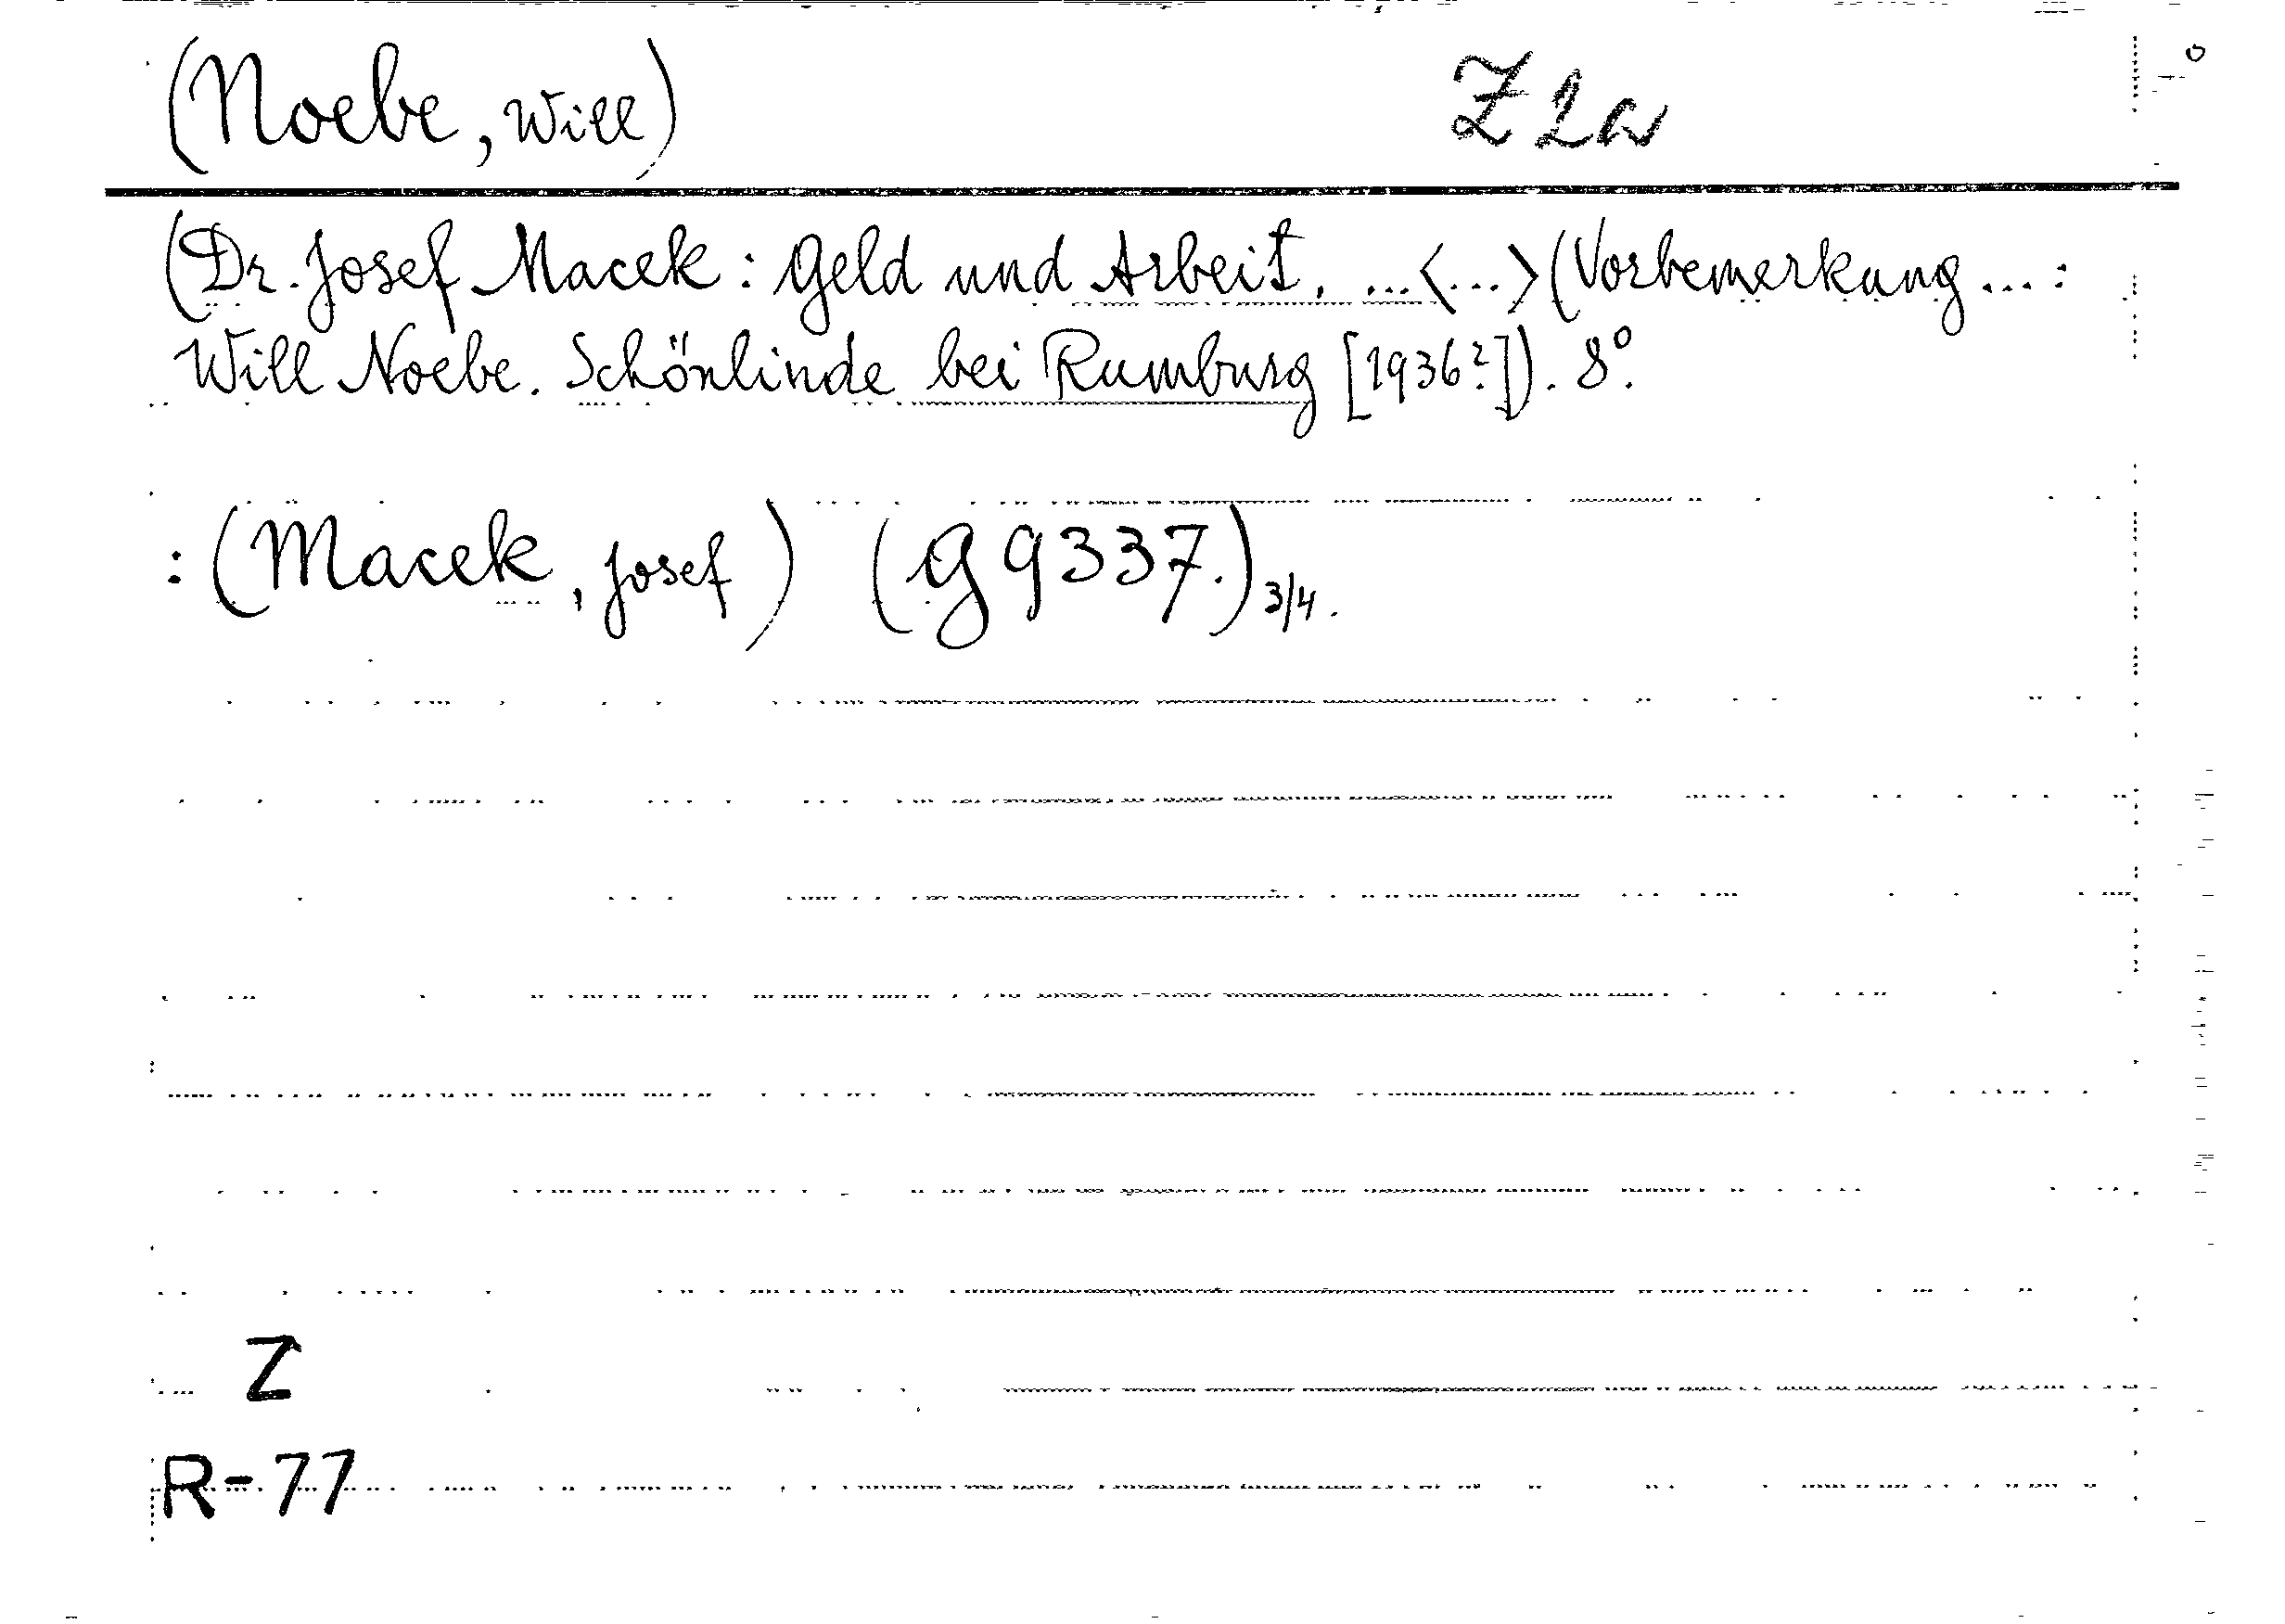 (Noebe, Will) Z 2a
(Dr. Josef Macek: Geld und Arbeit. ...<...>(Vorbemerkung ...:
Will Noebe. Schönlinde bei Rumburg [1936?]). 8°.
:(Macek, Josef) (G 9337.) 3/4.
Z
R-77